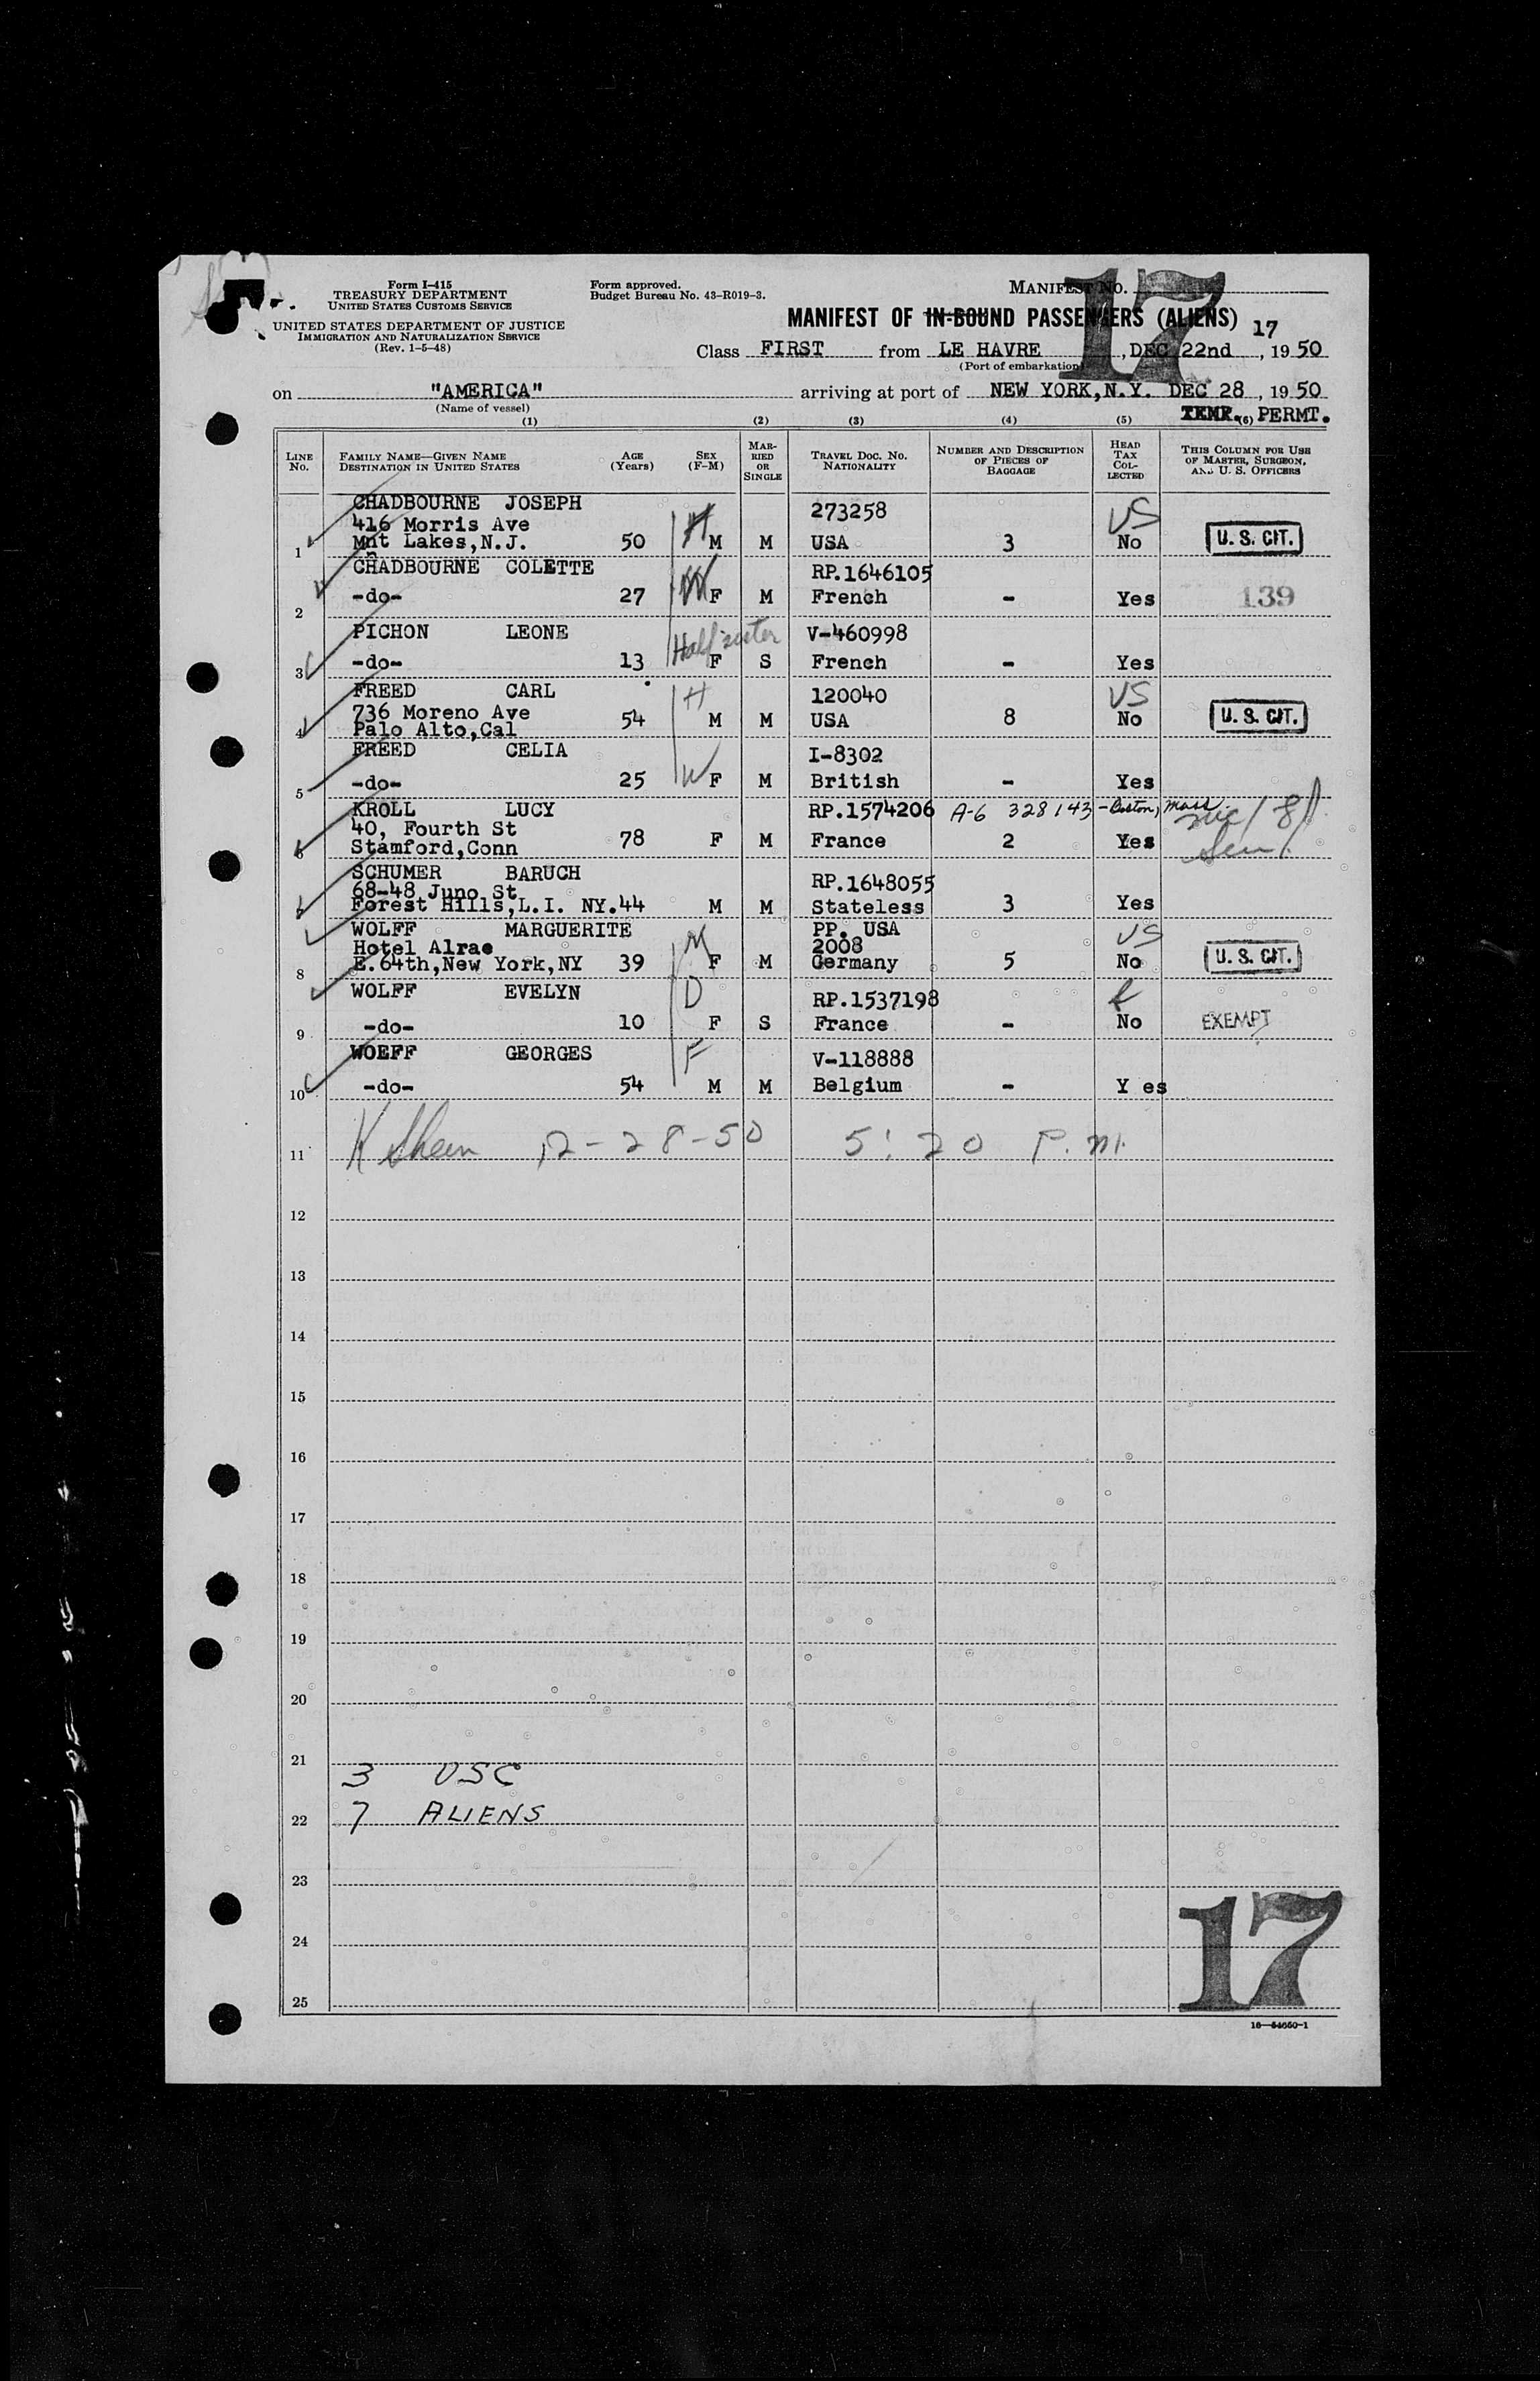 Form I-415
TREASURY DEPARTMENT
UNITED STATES CUSTOMS SERVICE
UNITED STATES DEPARTMENT OF JUSTICE
IMMIGRATION AND NATURALIZATION SERVICE
(Rev. 1-5-48)
Form approved.
Budget Bureau No. 43-R019-3.
MANIFEST NO. 17
MANIFEST OF IN-BOUND PASSENGERS (ALIENS) 17
Class FIRST from LE HAVRE, DEC 22nd, 1950
(Port of embarkation)
on "AMERICA" arriving at port of NEW YORK, N.Y. DEC 28, 1950
(Name of vessel)
TEMP. PERMT.
(1) (2) (3) (4) (5) (6)
LINE No. FAMILY NAME—GIVEN NAME DESTINATION IN UNITED STATES AGE (Years) SEX (F-M) MARRIED OR SINGLE TRAVEL DOC. NO. NATIONALITY NUMBER AND DESCRIPTION OF PIECES OF BAGGAGE HEAD TAX COLLECTED THIS COLUMN FOR USE OF MASTER, SURGEON, AND U. S. OFFICERS
CHADBOURNE JOSEPH 273258 US
416 Morris Ave H
1 Mnt Lakes,N.J. 50 M M USA 3 No U. S. CIT.
CHADBOURNE COLETTE RP.1646105
2 -do- 27 W F M French - Yes 139
PICHON LEONE Half sister V-460998
3 -do- 13 F S French - Yes
FREED CARL H 120040 US
736 Moreno Ave
4 Palo Alto,Cal 54 M M USA 8 No U. S. CIT.
FREED CELIA I-8302
5 -do- 25 W F M British - Yes
KROLL LUCY RP.1574206 A-6 328143 - Boston, Mass.
40, Fourth St
6 Stamford,Conn 78 F M France 2 Yes
SCHUMER BARUCH RP.1648055
68-48 Juno St
Forest Hills,L.I. NY. 44 M M Stateless 3 Yes
WOLFF MARGUERITE M PP. USA US
Hotel Alrae 2008
8 E.64th,New York,NY 39 F M Germany 5 No U. S. CIT.
WOLFF EVELYN D RP.1537198
9 -do- 10 F S France - No EXEMPT
WOLFF GEORGES F V-118888
10 -do- 54 M M Belgium - Yes
11 12-28-50 5:20 P.m.
12
13
14
15
16
17
18
19
20
21
3 USC
22 7 ALIENS
23
24
25
17
16—54660-1